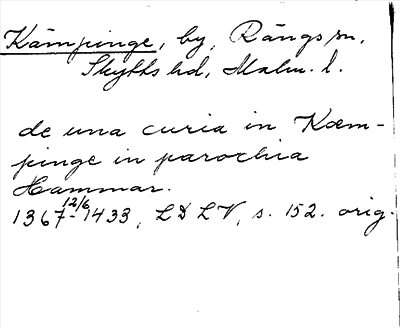 Kämpinge, by, Rängs sn.
Skytts hd, Malm. l.
de una curia in Kæm-
pinge in parochia
Hammar.
1367 12/6 - 1433, LDLV, s. 152. orig.